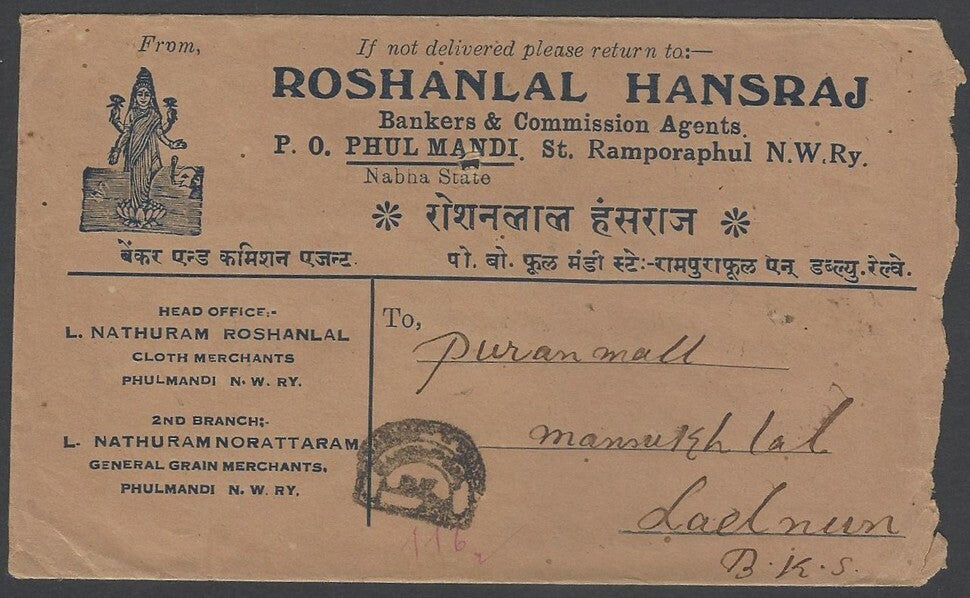 From,
If not delivered please return to:—
ROSHANLAL HANSRAJ
Bankers & Commission Agents.
P. O. PHUL MANDI. St. Ramporaphul N.W.Ry.
Nabha State
❋ रोशनलाल हंसराज ❋
बेंकर एन्ड कमिशन एजन्ट.
पो. बो. फूल मंडी स्टेः-रामपुराफूल एन् डब्ल्यु.रेल्वे.
HEAD OFFICE:-
L. NATHURAM ROSHANLAL
CLOTH MERCHANTS
PHULMANDI N. W. RY.
2ND BRANCH:-
L. NATHURAM NORATTARAM
GENERAL GRAIN MERCHANTS,
PHULMANDI N. W. RY.
To,
Puranmall
mansukh lal
Ladnun
B.K.S.
116